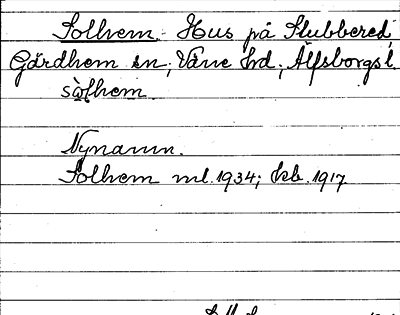 Solhem. Hus på Stubbered,
Gärdhem sn; Väne hd; Älfsborgs l.
sòlhem.
Nynamn.
Solhem ml. 1934; kb. 1917.